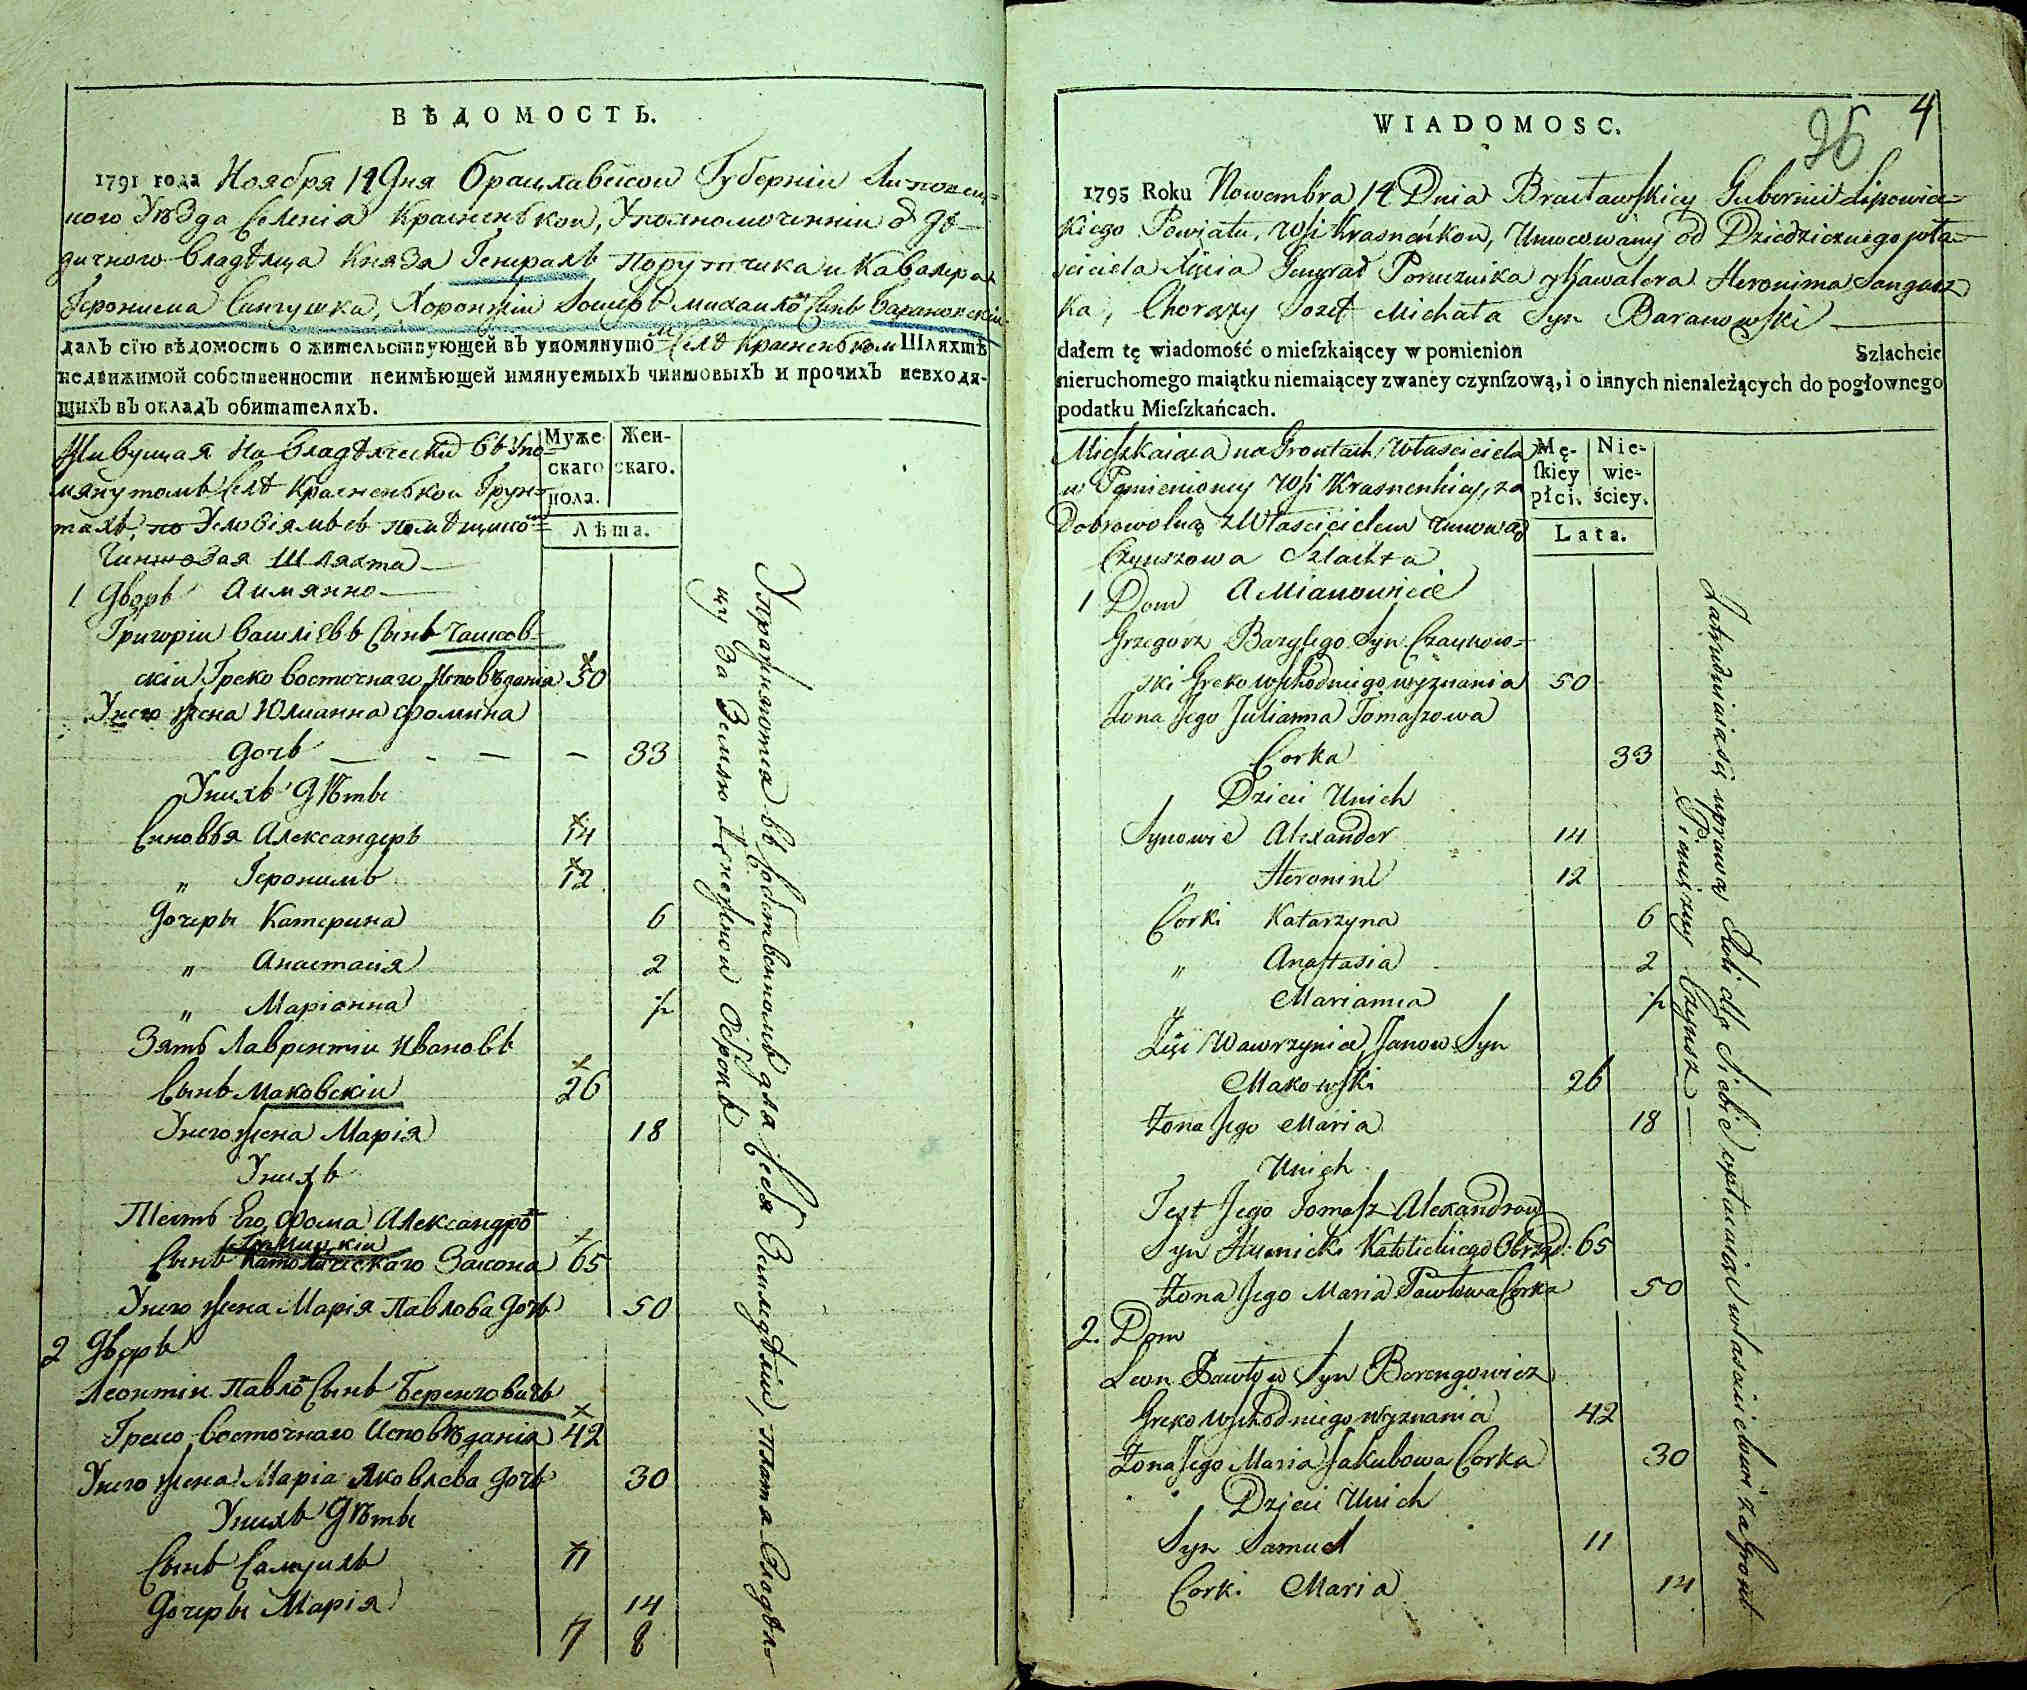 ВѢДОМОСТЬ.
1791 года Ноября 14 Дня Брацлавской Губерніи Липовец-
кого Уѣзда Селенія Красненькой, Уполномоченніи о де-
дичного владѣлца Княза Генералъ Порутчика и Кавалера
Геронима Сангушка, Хоронжіи Іосифъ Михаило Сынъ Барановскіи
далъ сїю вѣдомость о жительствующей въ упомянуто м Селѣ Красненьком Шляхтѣ
недвижимой собственности неимѣющей имянуемыхъ чиншовыхъ и прочихъ невходя-
щихъ въ окладъ обитателяхъ.
Живущая На владѣлчески въ Упо-
мянутомъ Селѣ Красненькой Грун-
тахъ, по Условіямъ съ помѣщико
Чиншовая Шляхта
Муже-
скаго
пола.
Жен-
скаго.
Лѣта.
1 Дворъ Аимянно
Григоріи Василіевъ Сынъ Чайков-
скіи Греко Восточнаго Исповѣданія 50
Унего жена Юлианна Фомина
дочь — - — — 33
Унихъ Дѣты
Синовья Александеръ 14
„ Геронимъ 12
Дочеры Катерина 6
„ Анастасія 2
„ Маріанна ½
Зять Лаврентіи Ивановъ
Сынъ Маковскіи 26
Унего жена Марія 18
Унихъ
Тесть Его Фома Александро
Сынъ Католическаго Закона 65
Унего жена Марія Павлова Дочь 50
2 Дворъ
Леонтіи Павло Сынъ Беренговичъ
Греко Восточнаго Исповѣданія 42
Унего жена Маріа Яковлева дочь 30
Унихъ Дѣты
Сынъ Самуилъ 11
Дочеры Марія 14
7 8
Упражняются въ собственномъ для себя Земледѣліи, платя владѣл-
цу За Землю Денежной Оброкъ
4
26
WIADOMOSC.
1795 Roku Nowembra 14 Dnia Bracławskiey Gubernii Lipowiec-
kiego Powiatu, Wsi Krasneńkoy, Umocowany od Dziedzicznego wła-
ściciela Xięcia Generał Porucznika y Kawalera Heronima Sangusz
ka, Chorąży Jozef Michała Syn Baranowski
dałem tę wiadomość o mieſzkaiącey w pomienion Szlachcie
nieruchomego maiątku niemaiącey zwaney czynſzową, i o innych nienależących do pogłownego
podatku Mieſzkańcach.
Mieszkaiąca na Grontach Właściciela
w Pomienioney Wsi Krasnenkiey, za
Dobrowolną z Właścicielem umową
Czynszowa Szlachta
Mę-
ſkiey
płci.
Nie-
wie-
ściey.
Lata.
1 Dom A Mianowicie
Grzegorz Bazylego Syn Czaykow-
ski Greko Wschodniego wyznania 50
Zona Jego Julianna Tomaszowa
Corka 33
Dzieci Unich
Synowie Alexander 14
„ Heronim 12
Corki Katarzyna 6
„ Anastasia 2
„ Marianna ½
Zięć Wawrzyniec Janow Syn
Makowski 26
Zona Jego Maria 18
Unich
Test Jego Tomasz Alexandrow
Syn Humicki Katolickiego Obrząd: 65
Zona Jego Maria Pawłowa Corka 50
2. Dom
Leon Pawłow Syn Berengowicz
Greko Wschodniego Wyznania 42
Zona Jego Maria Jakubowa Corka 30
Dzieci Unich
Syn Samuel 11
Corki Maria 14
Zatrudniaią się uprawą Roli dla Siebie, opłacaiąc właścicielowi za Gront
Pieniężny Czynsz